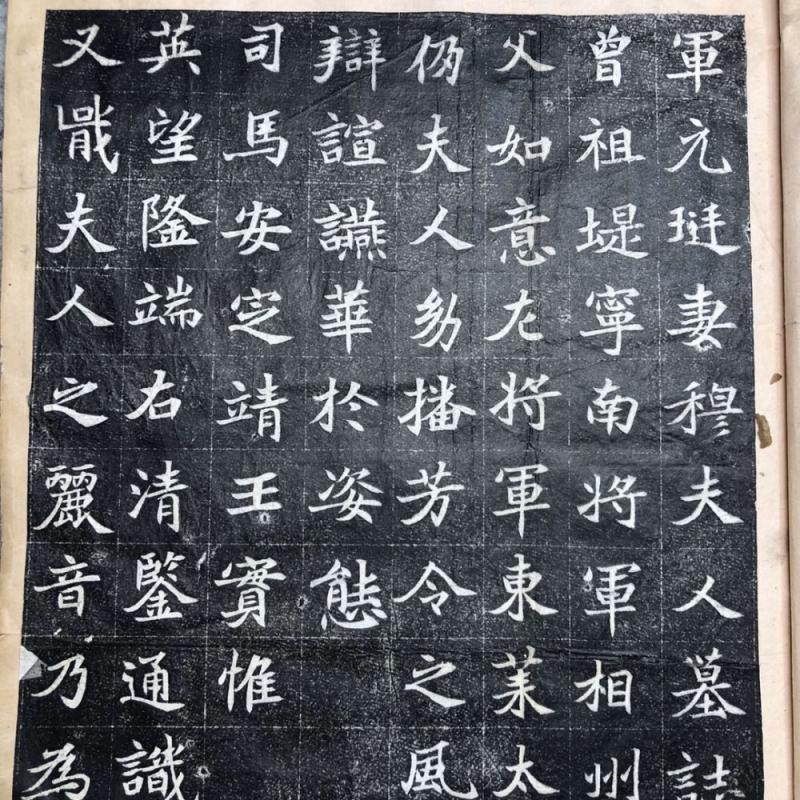 軍元珽妻穆夫人墓誌
曾祖堤寧南將軍相州
父如意左將軍東萊太
仍夫人幼播芳令之風
辯諠讌華於姿態
司馬安定靖王實惟
英望隆端右清鑒通識
又戢夫人之麗音乃為